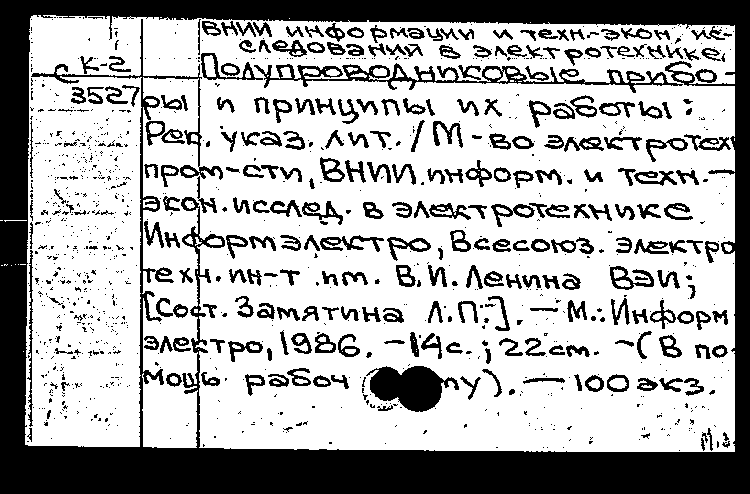 ВНИИ информации и техн.-экон. ис-
следований в электротехнике.
с К-2
Полупроводниковые прибо-
3527
ры и принципы их работы:
Рек. указ. лит. / М-во электротехн
пром-сти, ВНИИ информ. и техн.-
экон. исслед. в электротехнике
Информэлектро, Всесоюз. электро
техн. ин-т им. В.И. Ленина ВЭИ;
[Сост. Замятина Л.П.]. — М.: Информ
электро, 1986. — 14 с.; 22 см. — (В по-
мощь рабоч). — 100 экз.